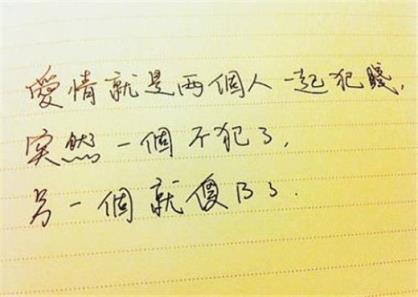 愛情就是兩個人一起犯賤，
突然一個不犯了，
另一個就傻B了.